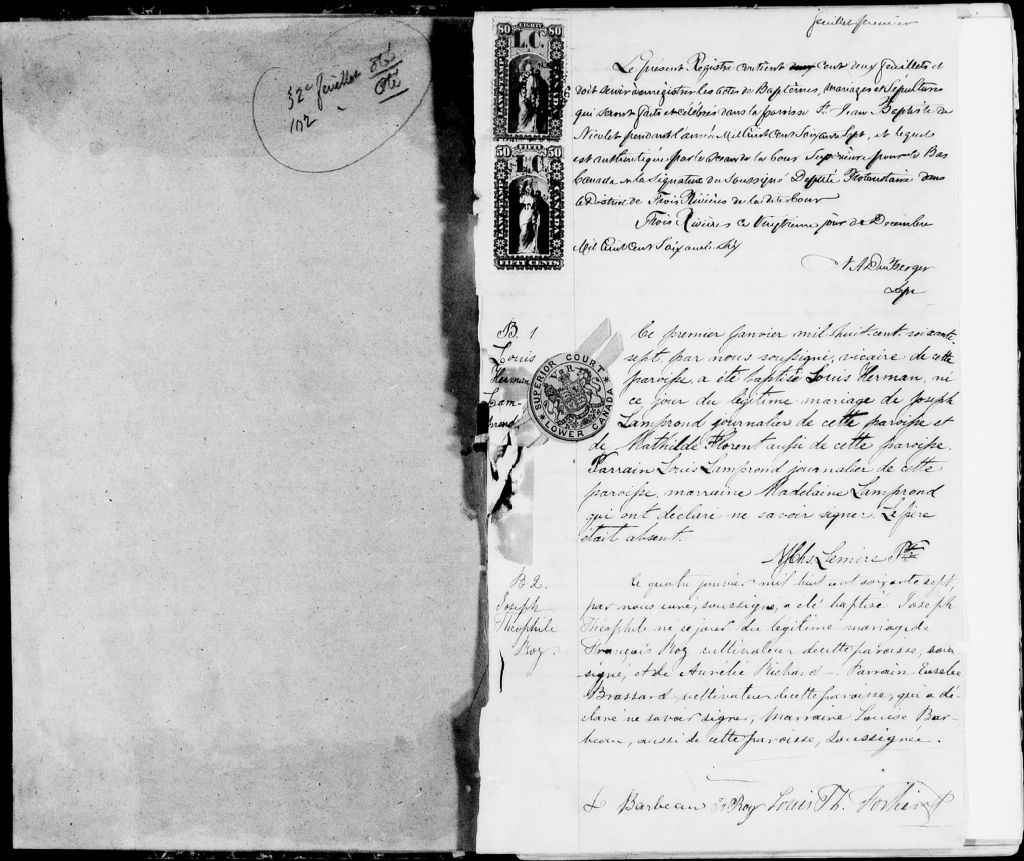 52e feuillet ôté
102 ôté
feuillet premier
EIGHTY
80 L.C. 80
LAW STAMP
LOWER CANADA
50 FIFTY 50
L.C.
LAW STAMP
LOWER CANADA
FIFTY CENTS
Le présent Registre contient cent deux feuillets et
doit servir à enregistrer les actes de Baptêmes, mariages et Sépultures
qui seront faits et célébrés dans la paroisse St Jean Baptiste de
Nicolet pendant l'année Mil huit Cent Soixante Sept, et lequel
est authentiqué par le Sceau de la Cour Supérieure pour le Bas
Canada et la signature du Soussigné Député Protonotaire dans
le District de Trois Rivières de la dite Cour
Trois Rivières ce Vingtième jour de Décembre
Mil huit Cent Soixante Six
B. 1
Louis
Herman
Lam-
prond
SUPERIOR COURT
LOWER CANADA
Ce premier Janvier mil huit-cent-soixante-
sept, par nous soussigné, vicaire de cette
paroisse, a été baptisé Louis Herman, né
ce jour du légitime mariage de Joseph
Lamprond journalier de cette paroisse et
de Mathilde Florent aussi de cette paroisse.
Parrain Louis Lamprond journalier de cette
paroisse, marraine Madelaine Lamprond
qui ont déclaré ne savoir signer. Le père
était absent.
Lemire Ptre
B 2.
Joseph
Théophile
Roy.
Le quatre janvier mil huit cent soixante sept,
par nous curé, soussigné, a été baptisé Joseph
Théophile né ce jour du légitime mariage de
François Roy cultivateur de cette paroisse, sous-
signé, et de Aurélie Richard. Parrain Eusèbe
Brassard cultivateur de cette paroisse, qui a dé-
claré ne savoir signer, Marraine Louise Bar-
beau, aussi de cette paroisse, soussignée.
L Barbeau Fr Roy Louis Th. Fortier Pt